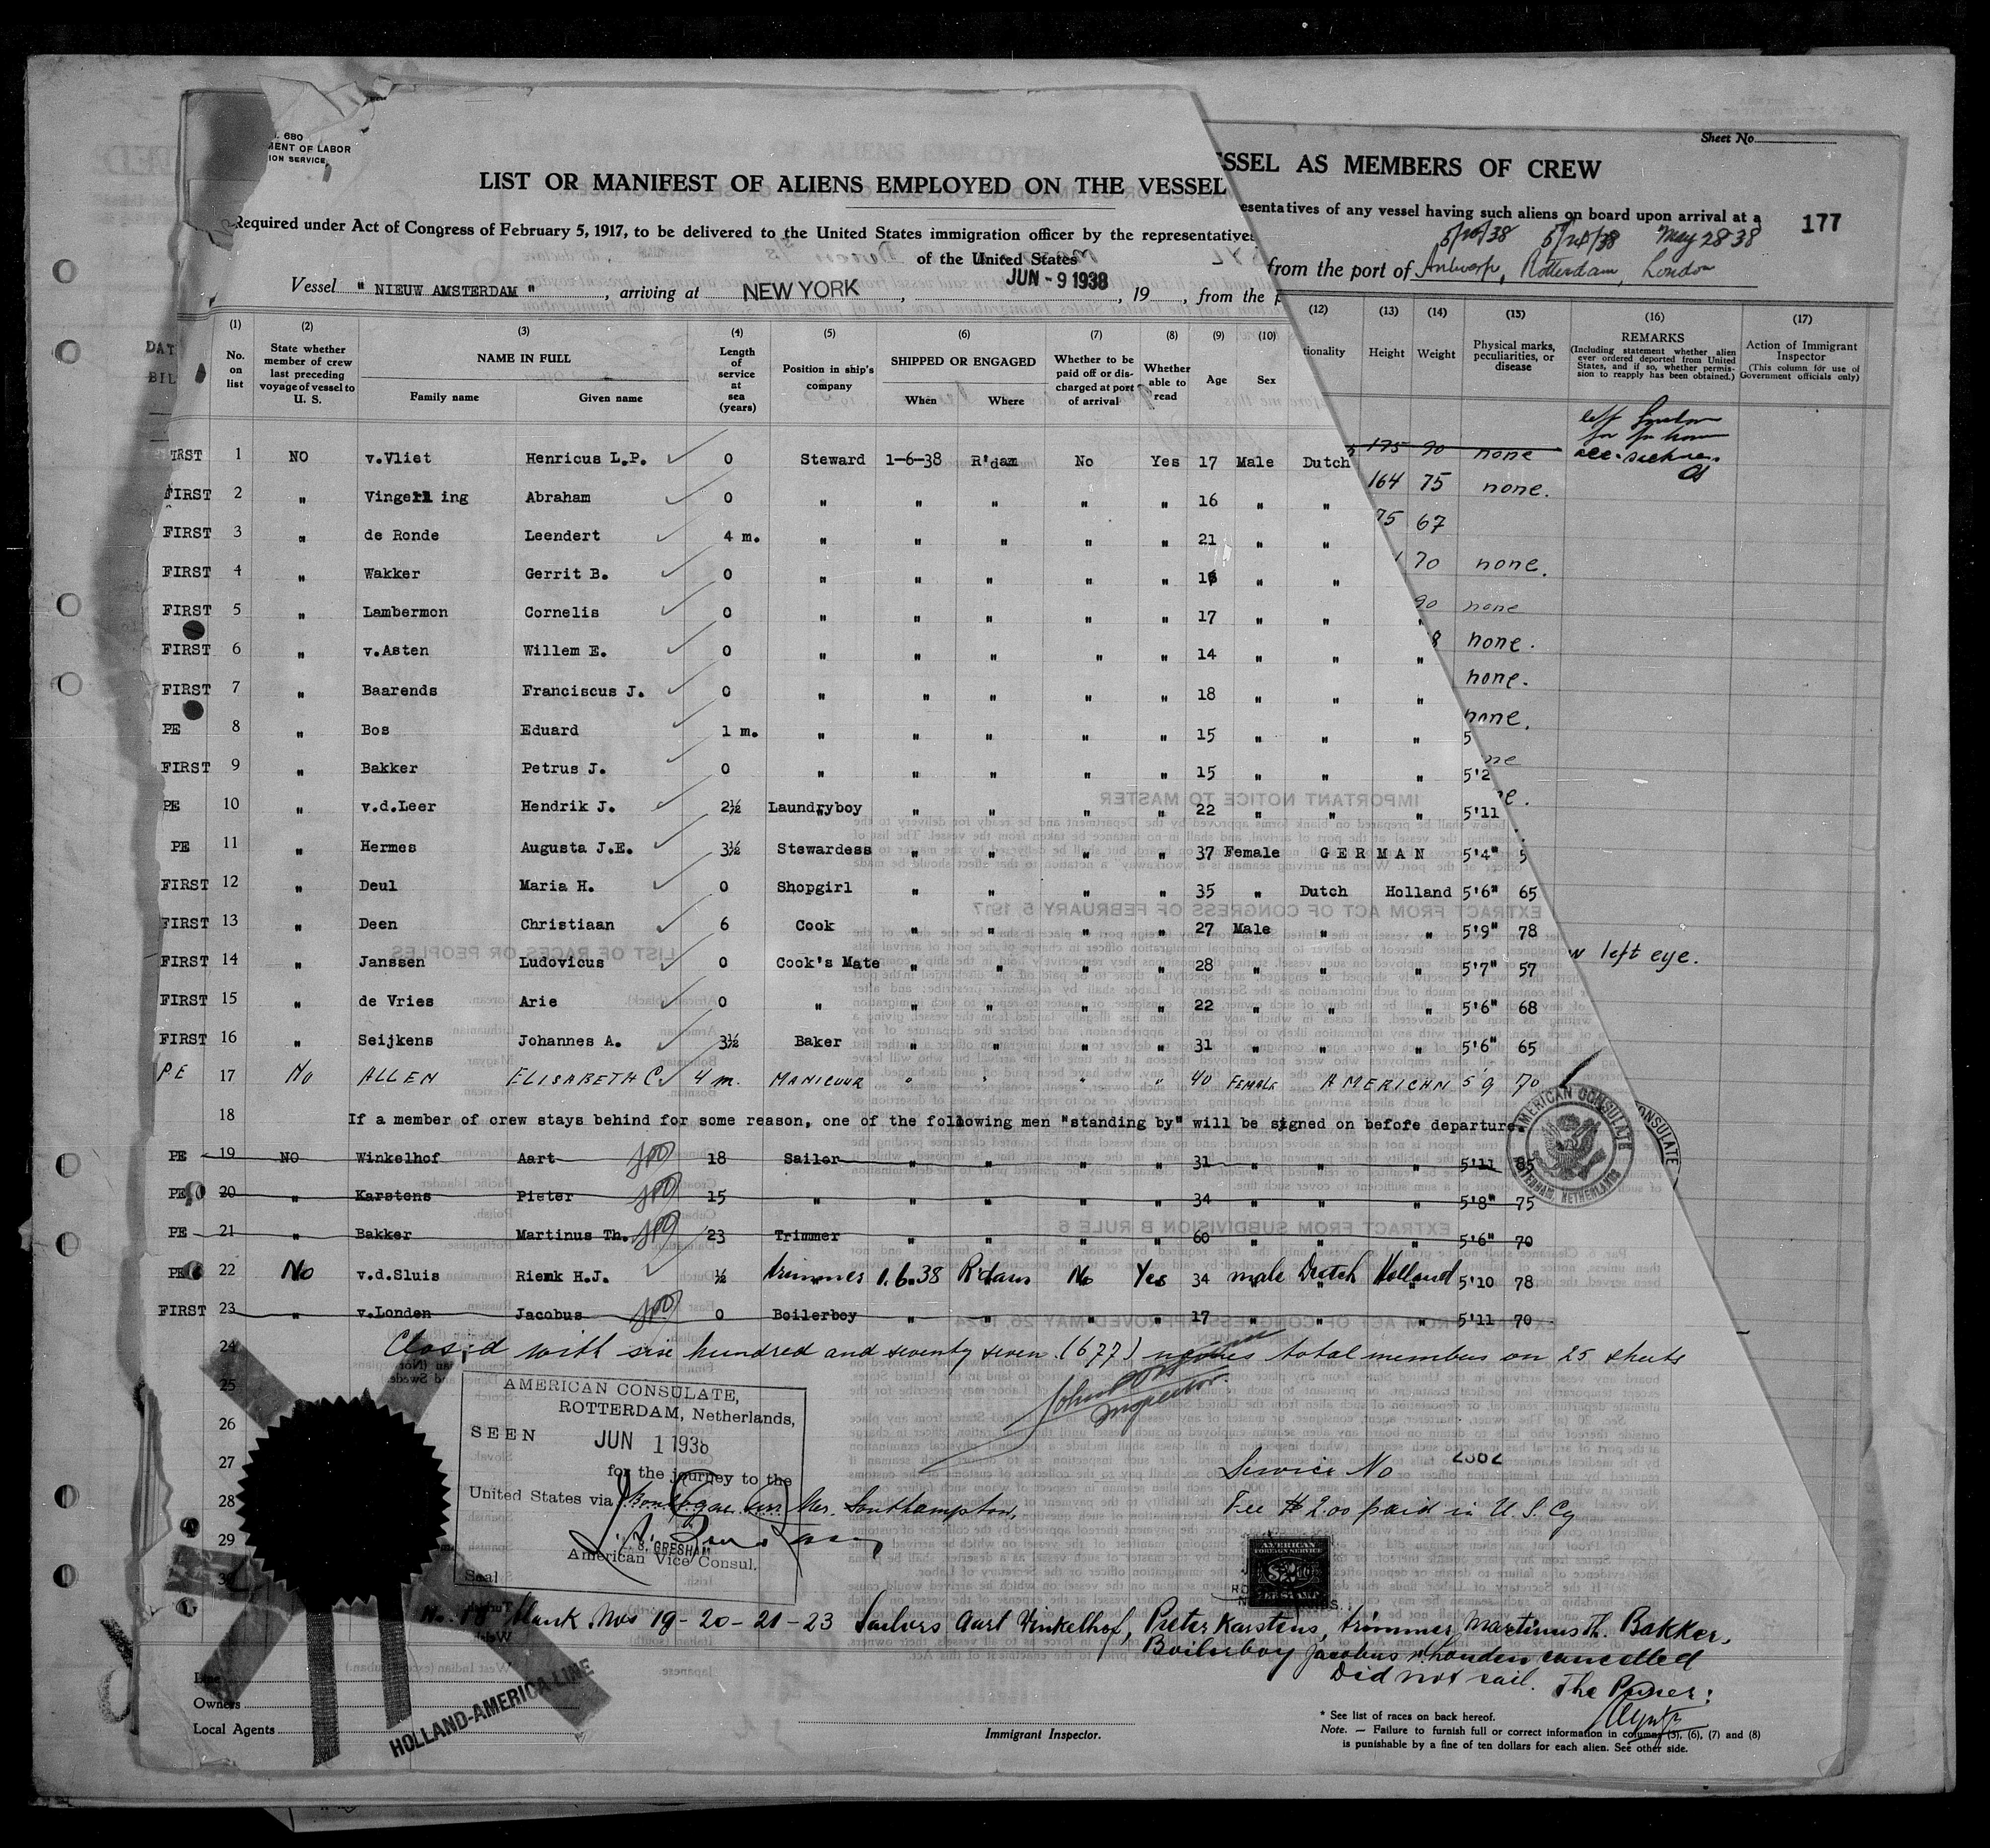 . 680
MENT OF LABOR
ION SERVICE
Sheet No.
LIST OR MANIFEST OF ALIENS EMPLOYED ON THE VESSEL
SSEL AS MEMBERS OF CREW
Required under Act of Congress of February 5, 1917, to be delivered to the United States immigration officer by the representatives
esentatives of any vessel having such aliens on board upon arrival at a
177
of the United States
5/28/38 May 28 38
Vessel " NIEUW AMSTERDAM " , arriving at NEW YORK , JUN - 9 1938 , 19 , from the p
from the port of Antwerp, Rotterdam, London
(1) (2) (3) (4) (5) (6) (7) (8) (9) (10) (12) (13) (14) (15) (16) (17)
No. on list
State whether member of crew last preceding voyage of vessel to U. S.
NAME IN FULL
Family name Given name
Length of service at sea (years)
Position in ship's company
SHIPPED OR ENGAGED
When Where
Whether to be paid off or discharged at port of arrival
Whether able to read
Age
Sex
tionality
Height
Weight
Physical marks, peculiarities, or disease
REMARKS
(Including statement whether alien ever ordered deported from United States, and if so, whether permission to reapply has been obtained.)
Action of Immigrant Inspector
(This column for use of Government officials only)
IRST 1 NO v.Vliet Henricus L.P. 0 Steward 1-6-38 R'dam No Yes 17 Male Dutch 175 90 none
FIRST 2 " Vingerling Abraham 0 " " " " " 16 " " 164 75 none.
FIRST 3 " de Ronde Leendert 4 m. " " " " " 21 " " 75 67
FIRST 4 " Wakker Gerrit B. 0 " " " " " 16 " " 70 none.
FIRST 5 " Lambermon Cornelis 0 " " " " " 17 " " " 90 none
FIRST 6 " v.Asten Willem E. 0 " " " " " 14 " " " 8 none.
FIRST 7 " Baarends Franciscus J. 0 " " " " " 18 " " " none.
PE 8 " Bos Eduard 1 m. " " " " " 15 " " " 5 none.
FIRST 9 " Bakker Petrus J. 0 " " " " " 15 " " " 5'2 ne
PE 10 " v.d.Leer Hendrik J. 2½ Laundryboy " " " " 22 " " " 5'11 e.
PE 11 " Hermes Augusta J.E. 3½ Stewardess " " " " 37 Female GERMAN 5'4" 5
FIRST 12 " Deul Maria H. 0 Shopgirl " " " " 35 " Dutch Holland 5'6" 65
FIRST 13 " Deen Christiaan 6 Cook " " " " 27 Male " " 5'9" 78
FIRST 14 " Janssen Ludovicus 0 Cook's Mate " " " " 28 " " " 5'7" 57 w left eye.
FIRST 15 " de Vries Arie 0 " " " " " 22 " " " 5'6" 68
FIRST 16 " Seijkens Johannes A. 3½ Baker " " " " 31 " " " 5'6" 65
PE 17 No ALLEN ELISABETH C. 4 m. MANICUUR " " " " 40 FEMALE AMERICAN 5'9 70
18 If a member of crew stays behind for some reason, one of the following men "standing by" will be signed on before departure.
PE 19 NO Winkelhof Aart 18 Sailor " " " " 31 " " " 5'11 85
PE 20 " Karstens Pieter 15 " " " " " 34 " " " 5'8" 75
PE 21 " Bakker Martinus Th. 23 Trimmer " " " " 60 " " " 5'6" 70
PE 22 No v.d.Sluis Rienk H.J. ½ trimmer 1.6.38 R'dam No Yes 34 male Dutch Holland 5'10 78
FIRST 23 " v.Londen Jacobus 0 Boilerboy " " " " 17 " " " 5'11 70
AMERICAN CONSULATE
ROTTERDAM, NETHERLANDS
ONSULATE
24 Closed with six hundred and seventy seven (677) names total members on 25 sheets
25
26
27
28
29
30
Inspector
AMERICAN CONSULATE,
ROTTERDAM, Netherlands,
SEEN JUN 1 1938
for the journey to the
United States via Boulogne sur Mer. Southampton,
S. GRESHAM
American Vice Consul.
Seal
Service No 2362
Fee $ 2.00 paid in U. S. Cy
AMERICAN
FOREIGN SERVICE
No. 18 blank Nos 19-20-21-23 Sailors Aart Winkelhof, Pieter Karstens, trimmer Martinus Th. Bakker,
Boilerboy Jacobus v. Londen cancelled
Did not sail. The Purser:
Line
Owners
Local Agents
HOLLAND-AMERICA LINE
Immigrant Inspector.
* See list of races on back hereof.
Note. — Failure to furnish full or correct information in columns (3), (6), (7) and (8)
is punishable by a fine of ten dollars for each alien. See other side.